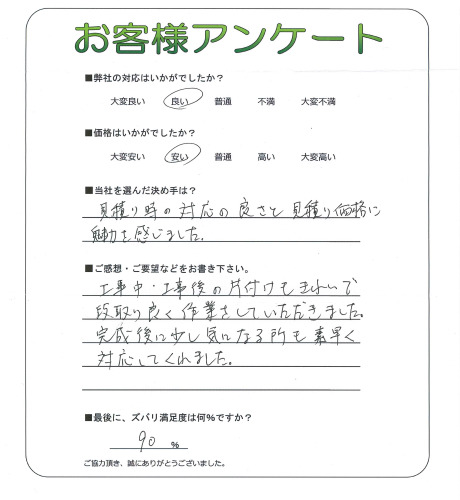 お客様アンケート
■弊社の対応はいかがでしたか？
大変良い 良い 普通 不満 大変不満
■価格はいかがでしたか？
大変安い 安い 普通 高い 大変高い
■当社を選んだ決め手は？
見積り時の対応の良さと見積り価格に
魅力を感じました。
■ご感想・ご要望などをお書き下さい。
工事中・工事後の片付けもきれいで
段取り良く作業をしていただきました。
完成後に少し気になる所も素早く
対応してくれました。
■最後に、ズバリ満足度は何%ですか？
90 %
ご協力頂き、誠にありがとうございました。